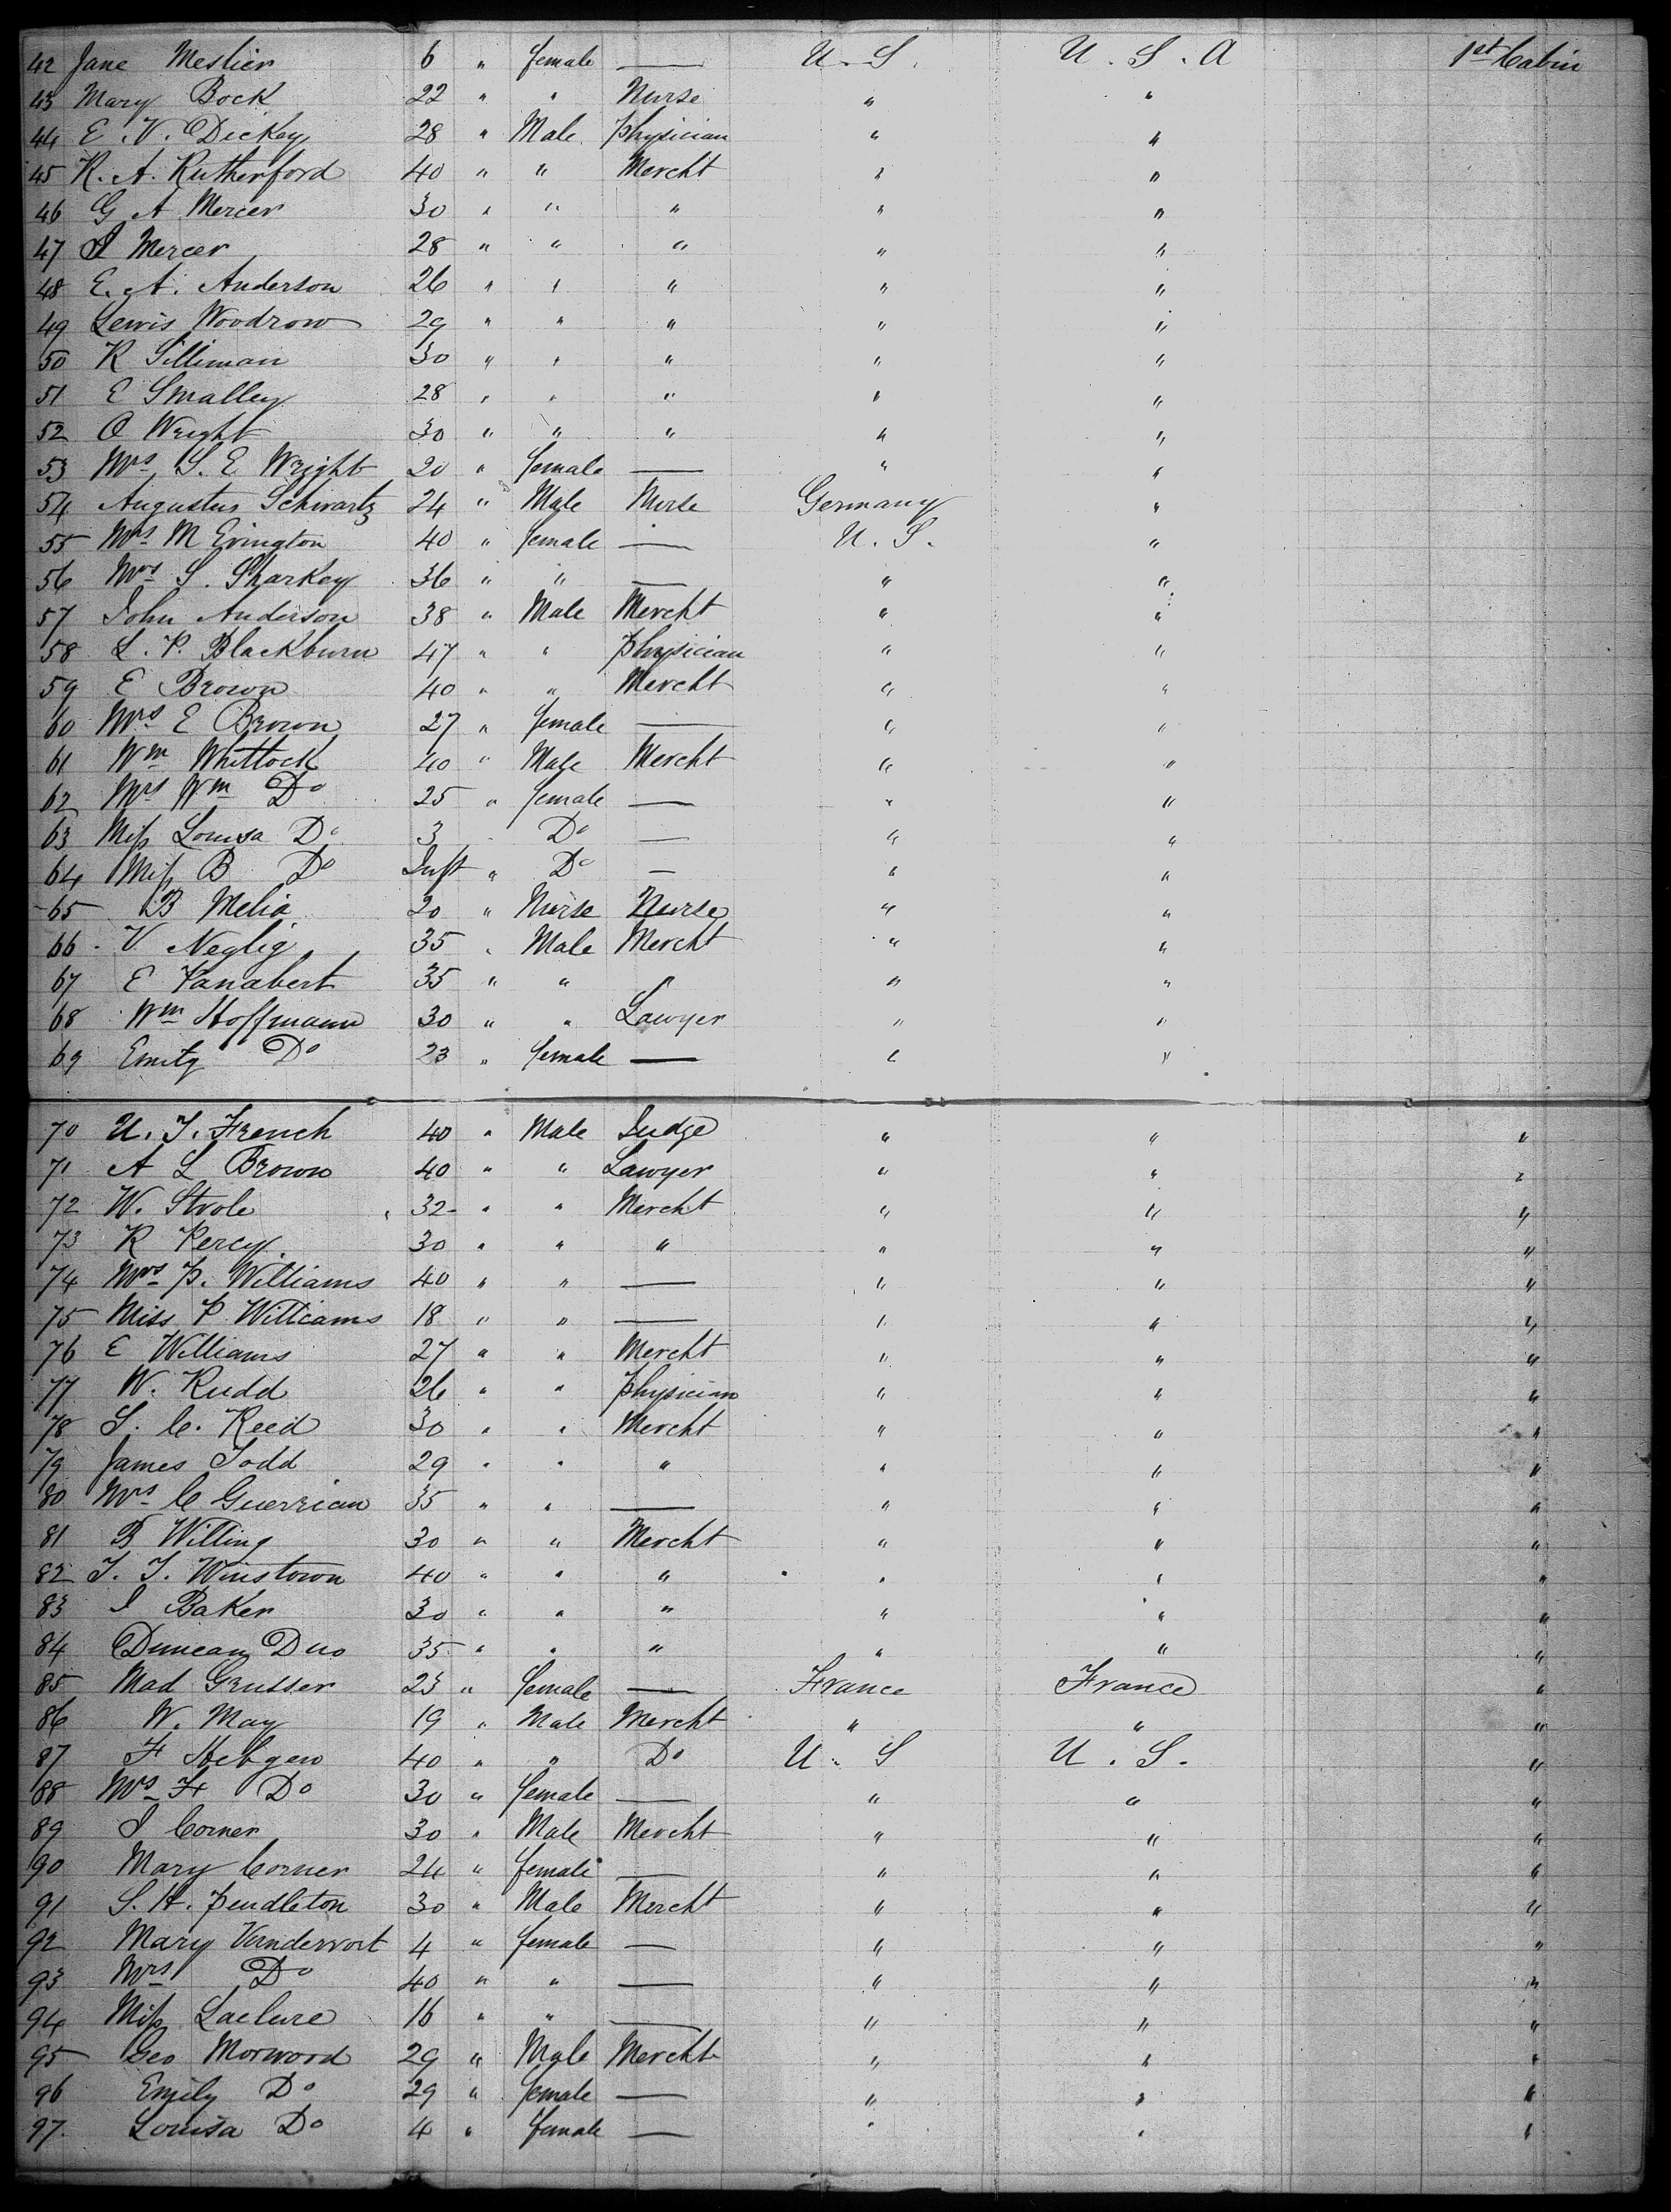 42 Jane Meslier 6 " female — U. S. U. S. A 1st Cabin
43 Mary Bock 22 " " Nurse " "
44 E. V. Dickey 28 " Male Physician " "
45 R. A. Rutherford 40 " " Mercht " "
46 G A Mercer 30 " " " " "
47 J Mercer 28 " " " " "
48 E. A. Anderson 26 " " " " "
49 Lewis Woodrow 29 " " " " "
50 R Silliman 30 " " " " "
51 E Smalley 28 " " " " "
52 O Wright 30 " " " " "
53 Mrs S. E Wright 20 " female — " "
54 Augustus Schwartz 24 " Male Nurse Germany "
55 Mrs M Evington 40 " female — U. S. "
56 Mrs S. Sharkey 36 " " — " "
57 John Anderson 38 " Male Mercht " "
58 L. P. Blackburn 47 " " Physician " "
59 E Brown 40 " " Mercht " "
60 Mrs E Brown 27 " female — " "
61 Wm Whitlock 40 " Male Mercht " "
62 Mrs Wm Do 25 " female — " "
63 Miss Louisa Do 3 " Do — " "
64 Miss B Do Inft " Do — " "
65 B Melia 20 " Nurse Nurse " "
66 V Neglig 35 " Male Mercht " "
67 E Vanabert 35 " " " " "
68 Wm Hoffmann 30 " " Lawyer " "
69 Emily Do 23 " female — " "
70 U. J. French 40 " Male Judge " " "
71 A L Brown 40 " " Lawyer " " "
72 W. Strole 32 " " Mercht " " "
73 R Percy 30 " " " " " "
74 Mrs P. Williams 40 " " — " " "
75 Miss P Williams 18 " " — " " "
76 E Williams 27 " " Mercht " " "
77 W. Rudd 26 " " Physician " " "
78 S. C. Reed 30 " " Mercht " " "
79 James Todd 29 " " " " " "
80 Mrs C Guerrian 35 " " — " " "
81 B Willing 30 " " Mercht " " "
82 T. J. Winstown 40 " " " " " "
83 J Baker 30 " " " " " "
84 Duncan Duo 35 " " " " " "
85 Mad Grusser 23 " female — France France "
86 W. May 19 " Male Mercht " " "
87 F Hebgen 40 " " Do U. S U. S. "
88 Mrs F Do 30 " female — " " "
89 J Corner 30 " Male Mercht " " "
90 Mary Corner 24 " female — " " "
91 S. H. Pendleton 30 " Male Mercht " " "
92 Mary Vandervort 4 " female — " " "
93 Mrs Do 40 " " — " " "
94 Miss Laclure 16 " " — " " "
95 Geo Morwood 29 " Male Mercht " " "
96 Emily Do 29 " female — " " "
97. Louisa Do 4 " female — " " "